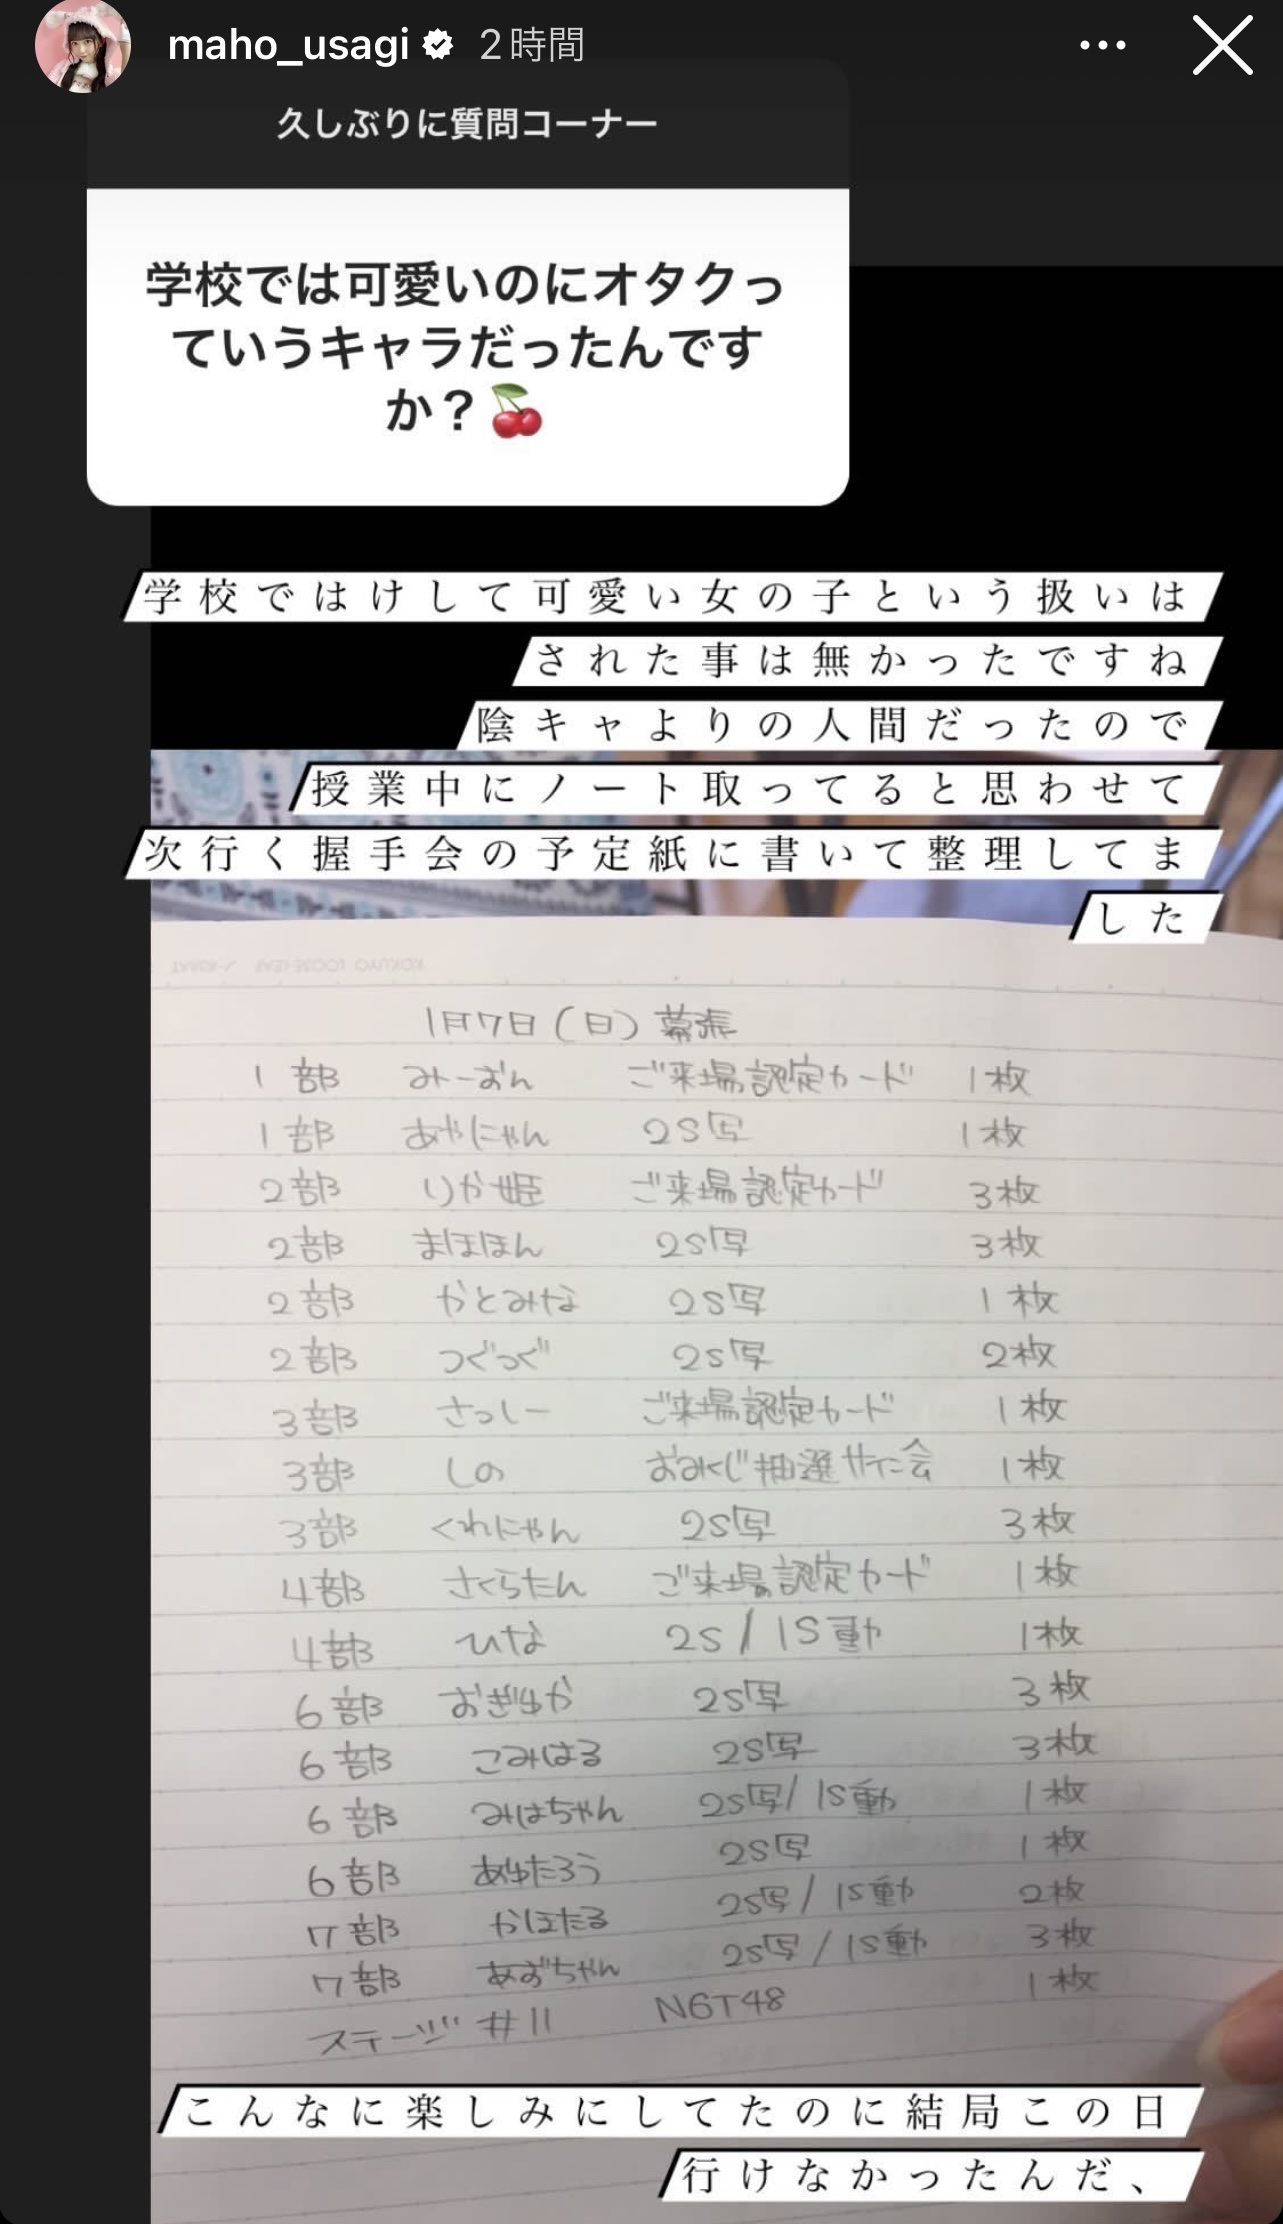 maho_usagi 2時間
久しぶりに質問コーナー
学校では可愛いのにオタクっ
ていうキャラだったんです
か？🍒
学校ではけして可愛い女の子という扱いは
された事は無かったですね
陰キャよりの人間だったので
授業中にノート取ってると思わせて
次行く握手会の予定紙に書いて整理してま
した
KOKUYO LOOSE-LEAF
1月7日（日）幕張
1部 みーおん ご来場認定カード 1枚
1部 あやにゃん 2S写 1枚
2部 りか姫 ご来場認定カード 3枚
2部 まほほん 2S写 3枚
2部 かとみな 2S写 1枚
2部 つぐつぐ 2S写 2枚
3部 さっしー ご来場認定カード 1枚
3部 しの おみくじ抽選サイン会 1枚
3部 くれにゃん 2S写 3枚
4部 さくらたん ご来場認定カード 1枚
4部 ひな 2S/1S動 1枚
6部 おぎゆか 2S写 3枚
6部 こみはる 2S写 3枚
6部 みはちゃん 2S写/1S動 1枚
6部 あゆたろう 2S写 1枚
7部 かほたる 2S写/1S動 2枚
7部 あずちゃん 2S写/1S動 3枚
ステージ #11 NGT48 1枚
こんなに楽しみにしてたのに結局この日
行けなかったんだ、